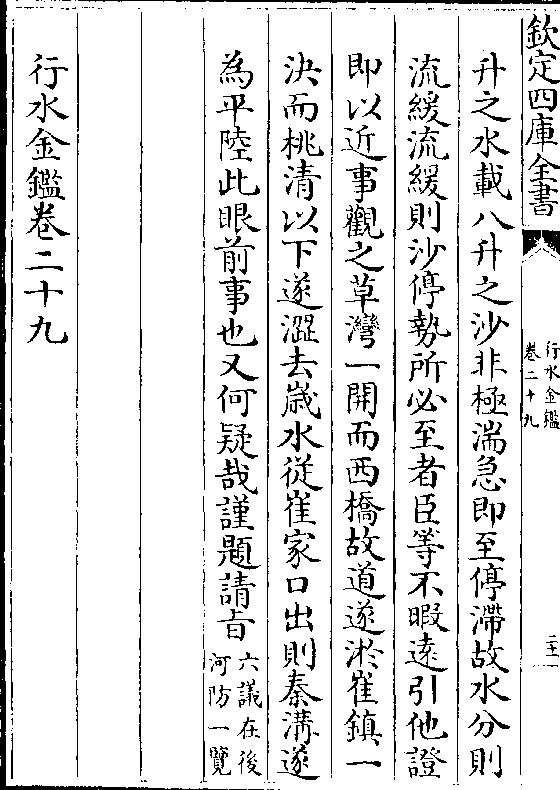 欽定四庫全書
行水金鑑
卷二十九
升之水載八升之沙非極湍急即至停滯故水分則
流緩流緩則沙停勢所必至者臣等不暇遠引他證
即以近事觀之草灣一開而西橋故道遂淤崔鎮一
決而桃清以下遂澀去歲水從崔家口出則秦溝遂
為平陸此眼前事也又何疑哉謹題請旨六議在後
河防一覽
行水金鑑卷二十九